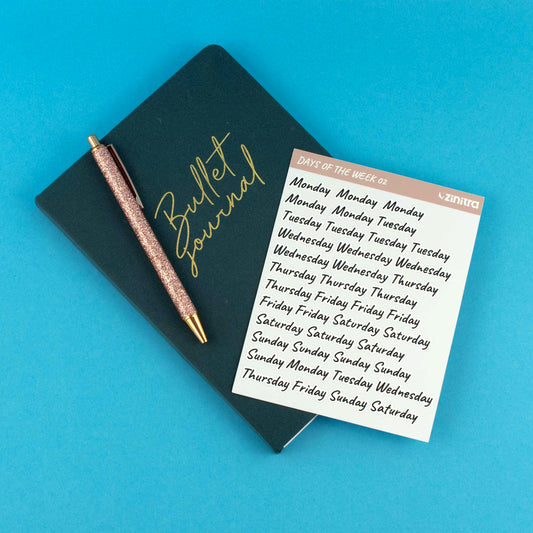 Bullet
Journal
DAYS OF THE WEEK 02
zinitra
Monday Monday Monday
Monday Monday Tuesday
Tuesday Tuesday Tuesday Tuesday
Wednesday Wednesday Wednesday
Wednesday Wednesday Thursday
Thursday Thursday Thursday
Thursday Friday Friday Friday
Friday Friday Saturday Saturday
Saturday Saturday Saturday
Sunday Sunday Sunday Sunday
Sunday Monday Tuesday Wednesday
Thursday Friday Sunday Saturday